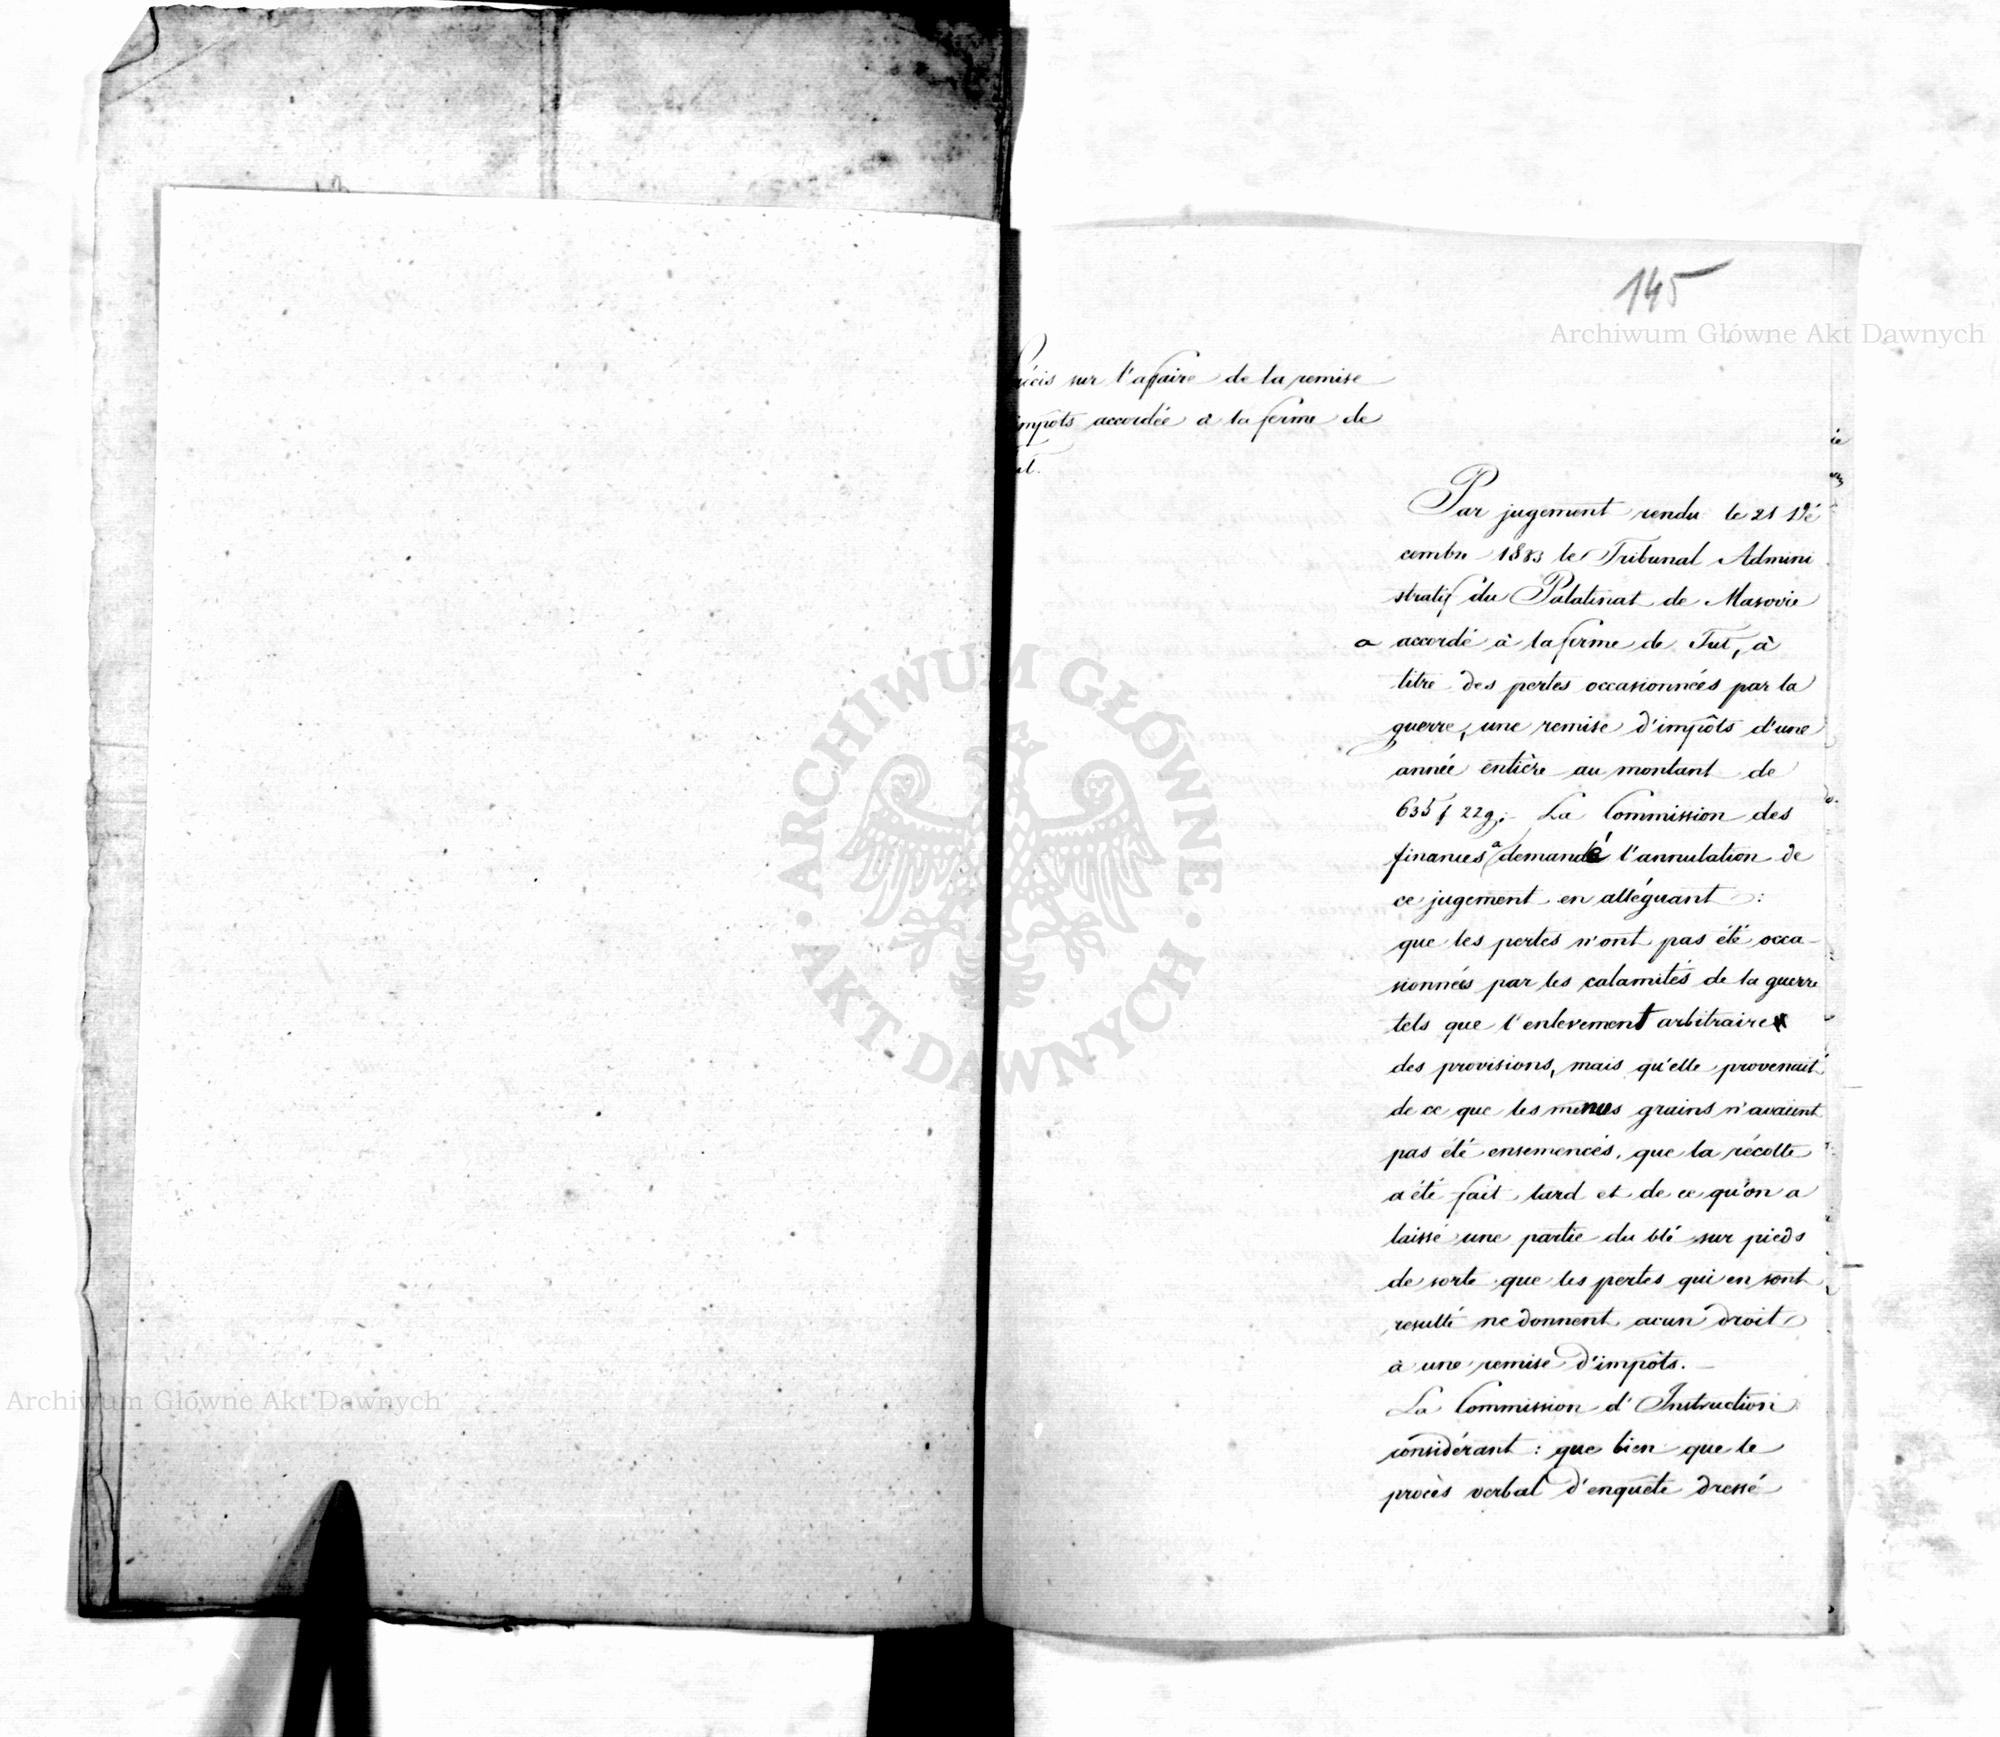 145
Archiwum Główne Akt Dawnych
récis sur l'affaire de la remise
impots accordée à la ferme de
Par jugement rendu le 21 Dé
cembre 1833 le Tribunal Admini
stratif du Palatinat de Masovie
a accordé à la ferme de Tut, à
titre des pertes occasionnées par la
guerre, une remise d'impôts d'une
année entière au montant de
635 f 22 g. La Commission des
finances a demandé l'annulation de
ce jugement en alléguant :
que les pertes n'ont pas été occa-
sionnées par les calamités de la guerre
tels que l'enlevement arbitraire
des provisions, mais qu'elle provenait
de ce que les menus grains n'avaient
pas été ensemencés, que la récolte
a été fait tard et de ce qu'on a
laissé une partie du blé sur pieds
de sorte que les pertes qui en sont
resulté ne donnent acun droit
à une remise d'impôts. —
La Commission d'Instruction
considérant : que bien que le
procès verbal d'enquête dressé
ARCHIWUM GŁÓWNE · AKT DAWNYCH ·
Archiwum Główne Akt Dawnych